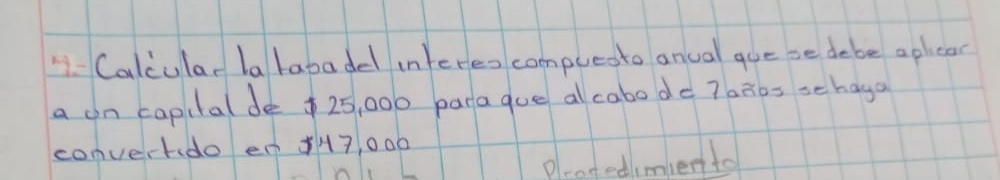 Calcular la tasa del interes compuesto anual que se debe aplicar
a un capital de $ 25,000 para que al cabo de 7 años se haya
convertido en $47,000
Procedimiento